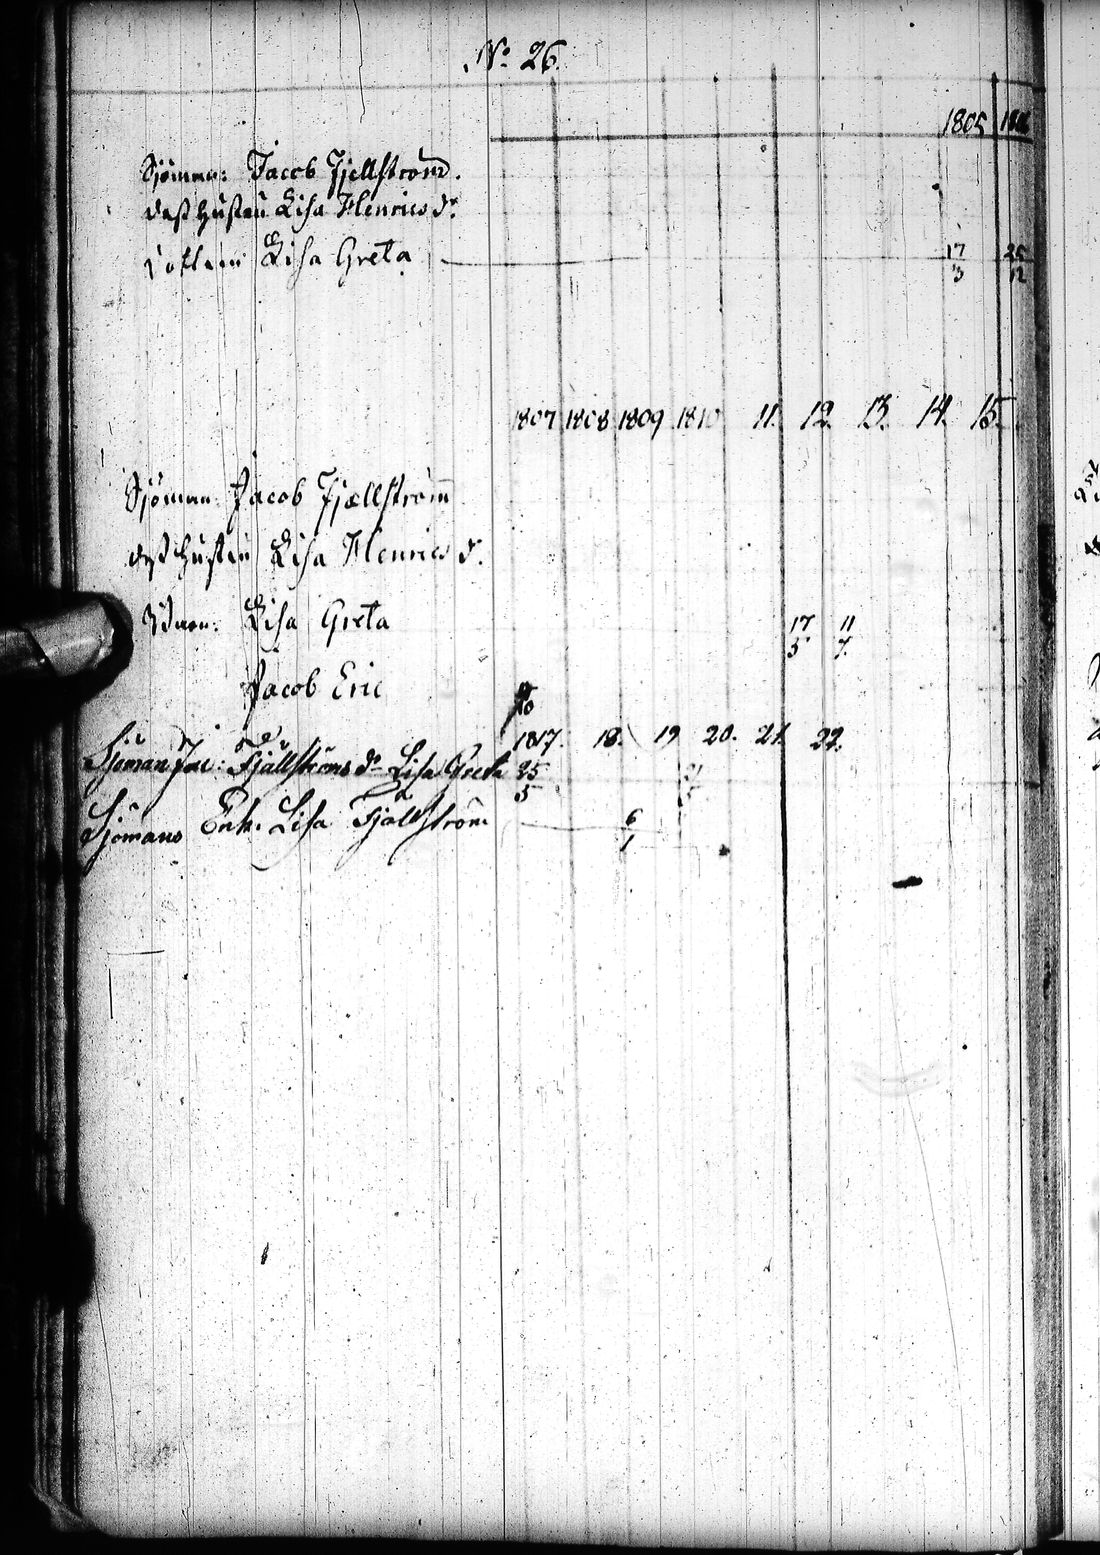 No 26.
1805
Sjöman: Jacob Fjellström.
dess Hustru Lisa Henricsdr.
Dottern Lisa Greta 17 25
3 12
1807 1808 1809 1810 11. 12. 13. 14. 15.
Sjöman Jacob Fjællström
dess Hustru Lisa Henricsd.
Barn: Lisa Greta 17 11
5 7.
Jacob Eric
1817. 18. 19 20. 21. 22.
Sjöman Jac: Fjällströms dr Lisa Greta 25
5
Sjömans Enk. Lisa Fjällström 6
1